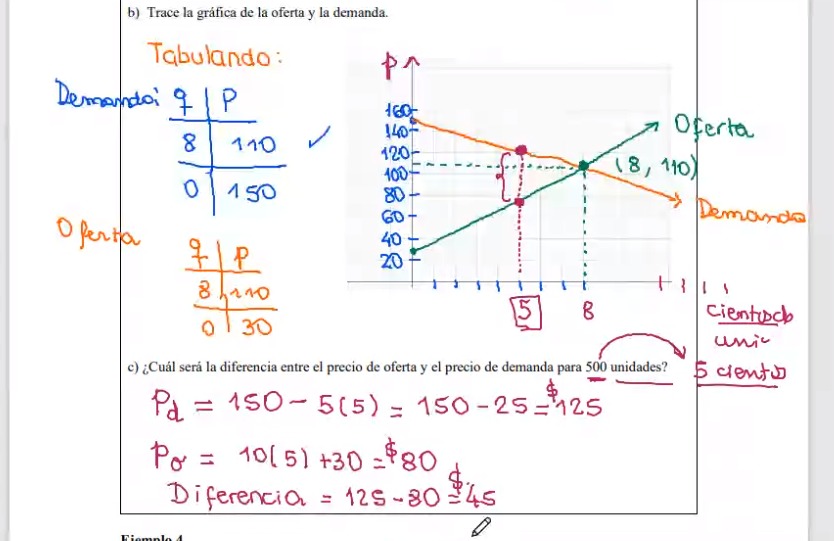 b) Trace la gráfica de la oferta y la demanda.
Tabulando:
Demanda: q P
8 110 ✓
0 150
Oferta
q P
8 110
0 30
P
160
140
120
100
80
60
40
20
Oferta
(8, 110)
Demanda
5 8
Cientos de
uni
5 cientos
c) ¿Cuál será la diferencia entre el precio de oferta y el precio de demanda para 500 unidades?
Pd = 150 - 5(5) = 150 - 25 = $125
Po = 10(5) + 30 = $80
Diferencia = 125 - 80 = $45
Ejemplo 4